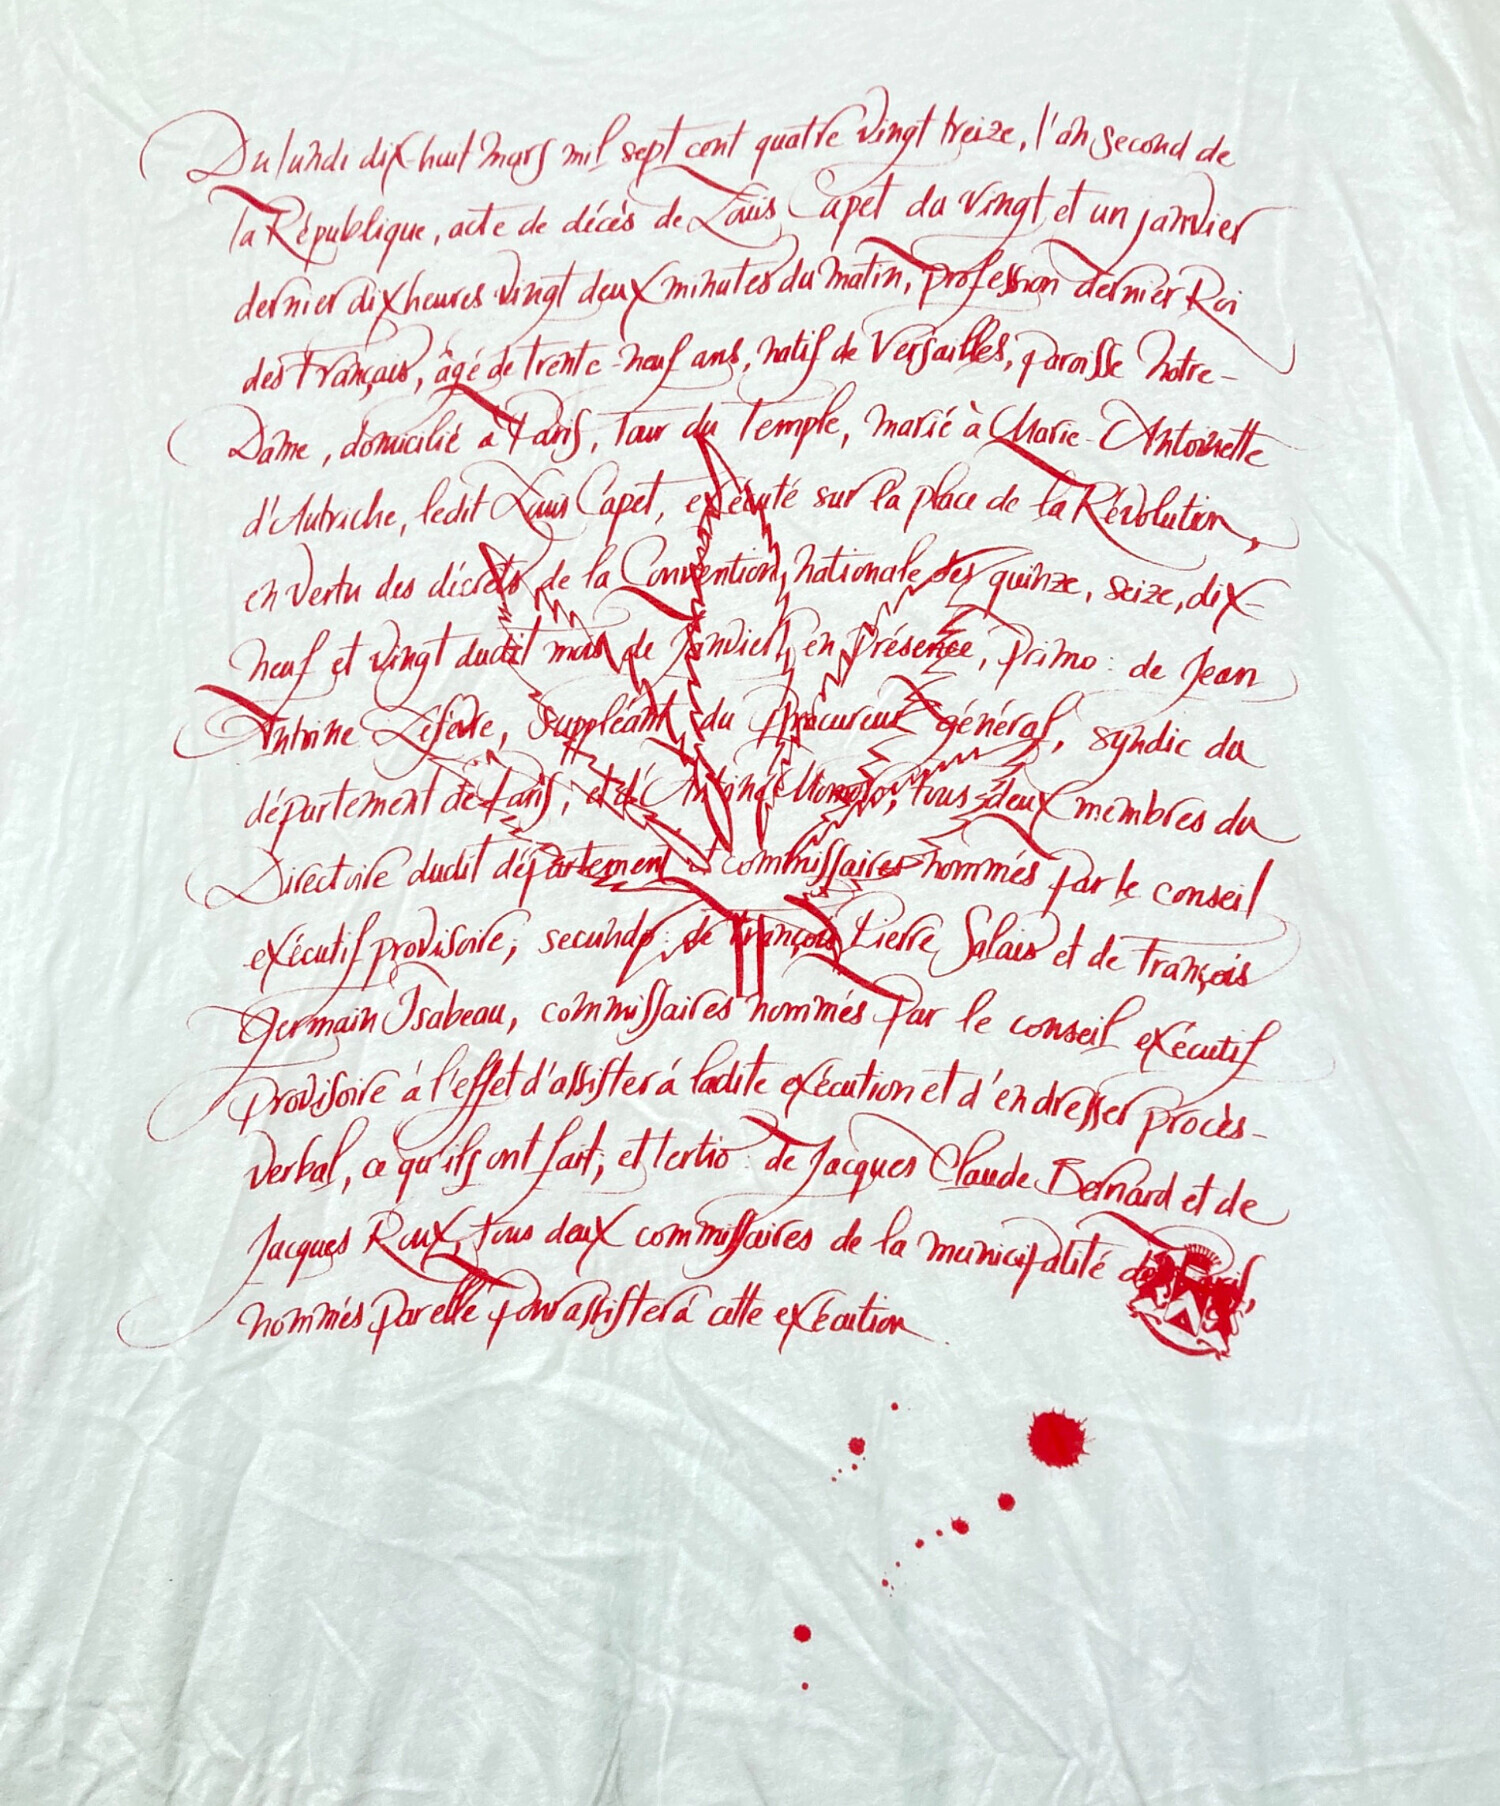 Du lundi dix-huit mars mil sept cent quatre vingt treize, l'an second de
la République, acte de décès de Louis Capet du vingt et un janvier
dernier dix heures vingt deux minutes du matin, profession dernier Roi
des Français, âgé de trente-neuf ans, natif de Versailles, paroisse Notre-
Dame, domicilié à Paris, Tour du Temple, marié à Marie-Antoinette
d'Autriche, ledit Louis Capet, exécuté sur la place de la Révolution,
en vertu des décrets de la Convention nationale des quinze, seize, dix-
neuf et vingt dudit mois de janvier, en présence, primo: de Jean
Antoine Lefèvre, suppléant du Procureur général, syndic du
département de Paris, et d'Antoine Momoro, tous deux membres du
Directoire dudit département et commissaires nommés par le conseil
exécutif provisoire, secundo: de François Pierre Salais et de François
Germain Isabeau, commissaires nommés par le conseil exécutif
provisoire à l'effet d'assister à ladite exécution et d'en dresser procès-
verbal, ce qu'ils ont fait; et tertio: de Jacques Claude Bernard et de
Jacques Roux, tous deux commissaires de la municipalité de Paris,
nommés par elle pour assister à cette exécution.